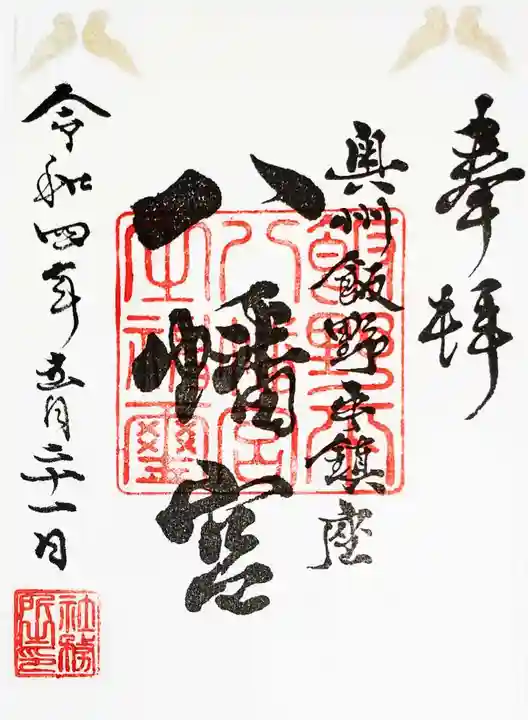 奉拝
奥州飯野平鎮座
八幡宮
令和四年五月二十一日
社務
所印